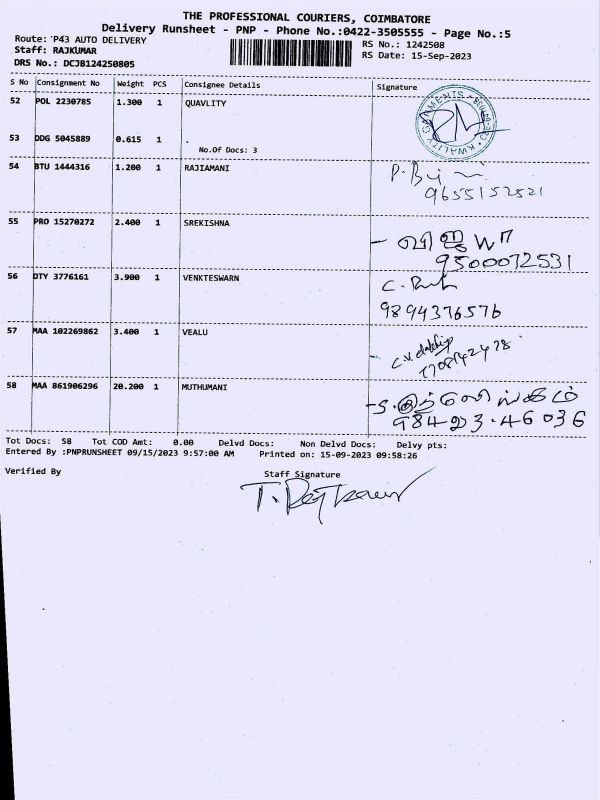 THE PROFESSIONAL COURIERS, COIMBATORE
Delivery Runsheet - PNP - Phone No.:0422-3505555 - Page No.:5
Route: P43 AUTO DELIVERY RS No.: 1242508
Staff: RAJKUMAR RS Date: 15-Sep-2023
DRS No.: DCJB124250805
S No Consignment No Weight PCS Consignee Details Signature
52 POL 2230785 1.300 1 QUAVLITY
KWALITY GARMENTS
53 DDG 5045889 0.615 1 .
No.Of Docs: 3
54 BTU 1444316 1.200 1 RAJIAMANI
9655152521
55 PRO 15270272 2.400 1 SREKISHNA
9500072531
56 DTY 3776161 3.900 1 VENKTESWARN
9894376576
57 MAA 102269862 3.400 1 VEALU
58 MAA 861906296 20.200 1 MUTHUMANI
98423.46036
Tot Docs: 58 Tot COD Amt: 0.00 Delvd Docs: Non Delvd Docs: Delvy pts:
Entered By :PNPRUNSHEET 09/15/2023 9:57:00 AM Printed on: 15-09-2023 09:58:26
Verified By Staff Signature